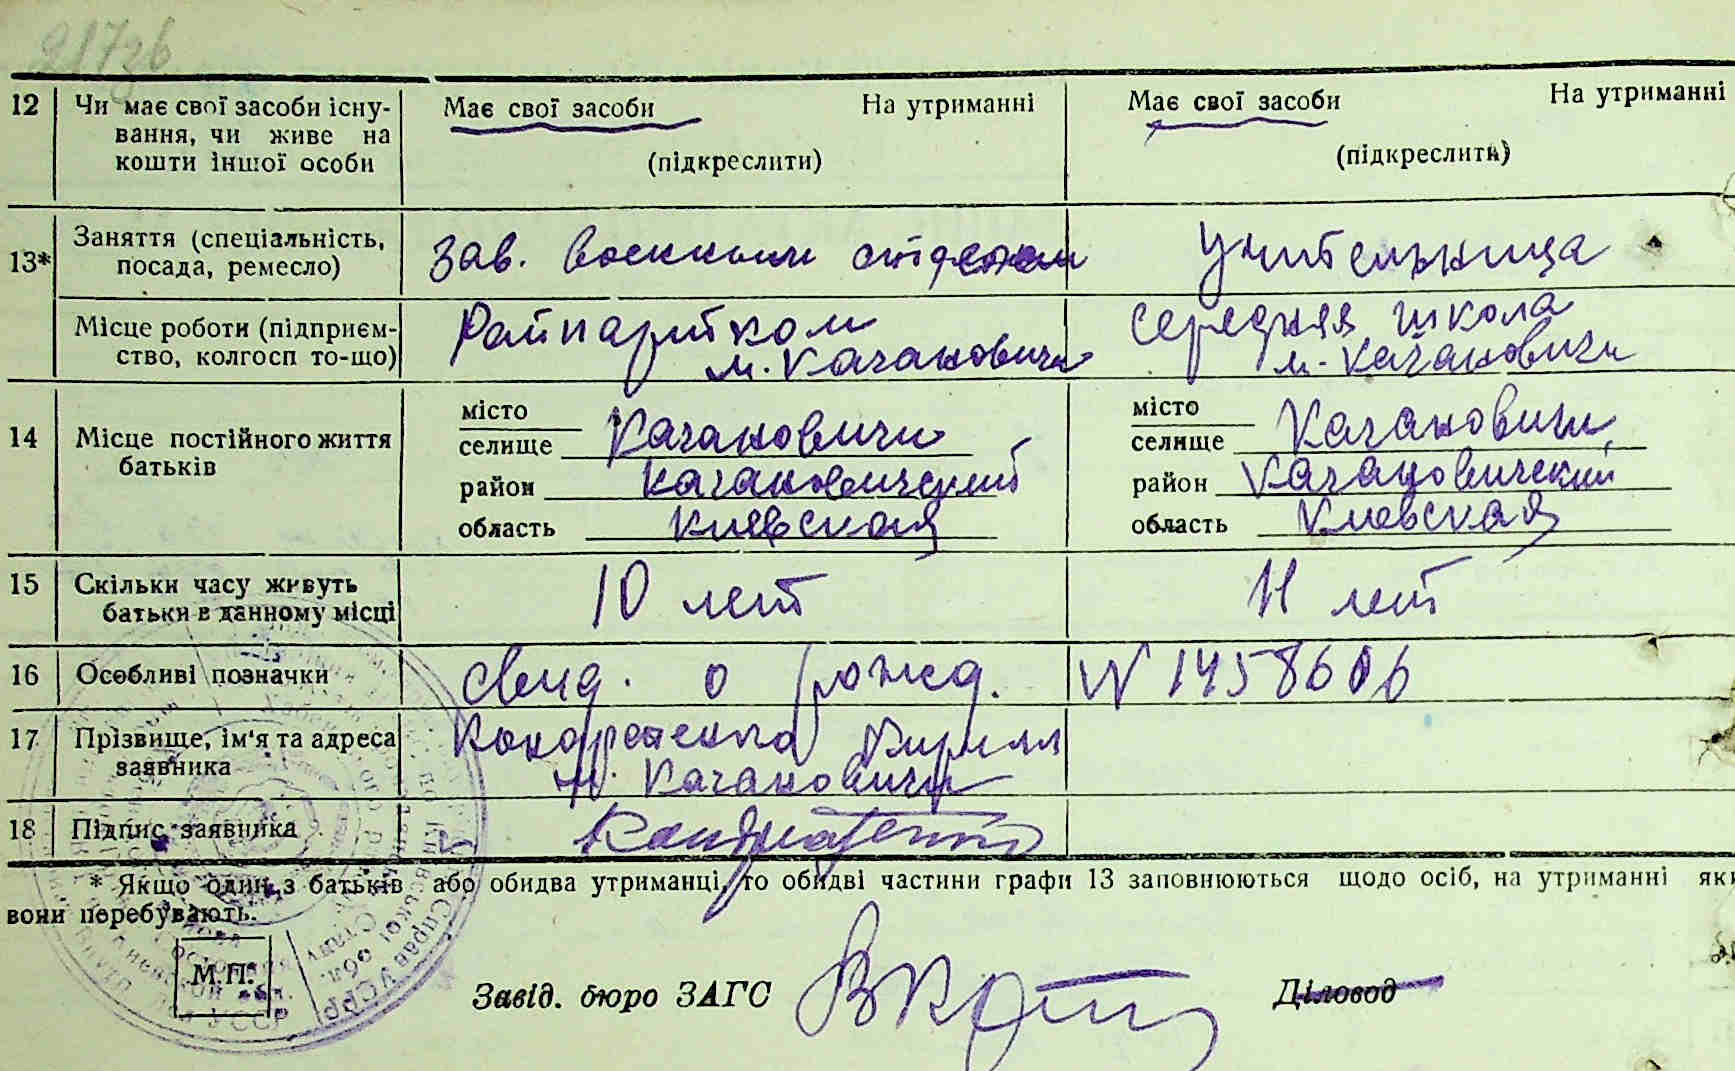 12 Чи має свої засоби існу- Має свої засоби На утриманні Має свої засоби На утриманні
вання, чи живе на
кошти іншої особи (підкреслити) (підкреслити)
13* Заняття (спеціальність, посада, ремесло) зав. военным отделом учительница
Місце роботи (підприєм- Райпартком середняя школа
ство, колгосп то-що) м. Качановичи м. Качановичи
14 Місце постійного життя батьків
місто
селище Качановичи
район Качановичский
область Киевская
місто
селище Качановичи
район Качановичский
область Киевская
15 Скільки часу живуть 10 лет 11 лет
батьки в данному місці
16 Особливі позначки свид. о рожд. N 1458606
17 Прізвище, ім'я та адреса Кирилл
заявника м. Качановичи
18 Підпис заявника
* Якщо один з батьків або обидва утриманці, то обидві частини графи 13 заповнюються щодо осіб, на утриманні яки
вони перебувають.
М.П.
Завід. бюро ЗАГС Діловод